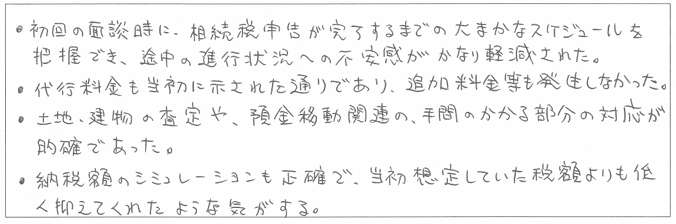 ・初回の面談時に、相続税申告が完了するまでの大まかなスケジュールを
把握でき、途中の進行状況への不安感がかなり軽減された。
・代行料金も当初に示された通りであり、追加料金等も発生しなかった。
・土地・建物の査定や、預金移動関連の、手間のかかる部分の対応が
的確であった。
・納税額のシミュレーションも正確で、当初想定していた税額よりも低
く抑えてくれたような気がする。